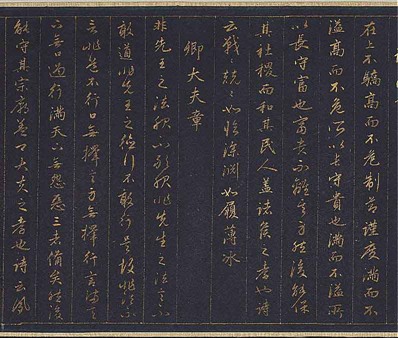 在上不驕高而不危制節謹度滿而不
溢高而不危所以長守貴也滿而不溢所
以長守富也富貴不離其身然後能保
其社稷而和其民人蓋諸侯之孝也詩
云戰〻兢〻如臨深淵如履薄冰
卿大夫章
非先王之法服不敢服非先王之法言不
敢道非先王之德行不敢行是故非法不
言非道不行口無擇言身無擇行言滿天
下無口過行滿天下無怨惡三者備矣然後
能守其宗廟蓋卿大夫之孝也詩云夙